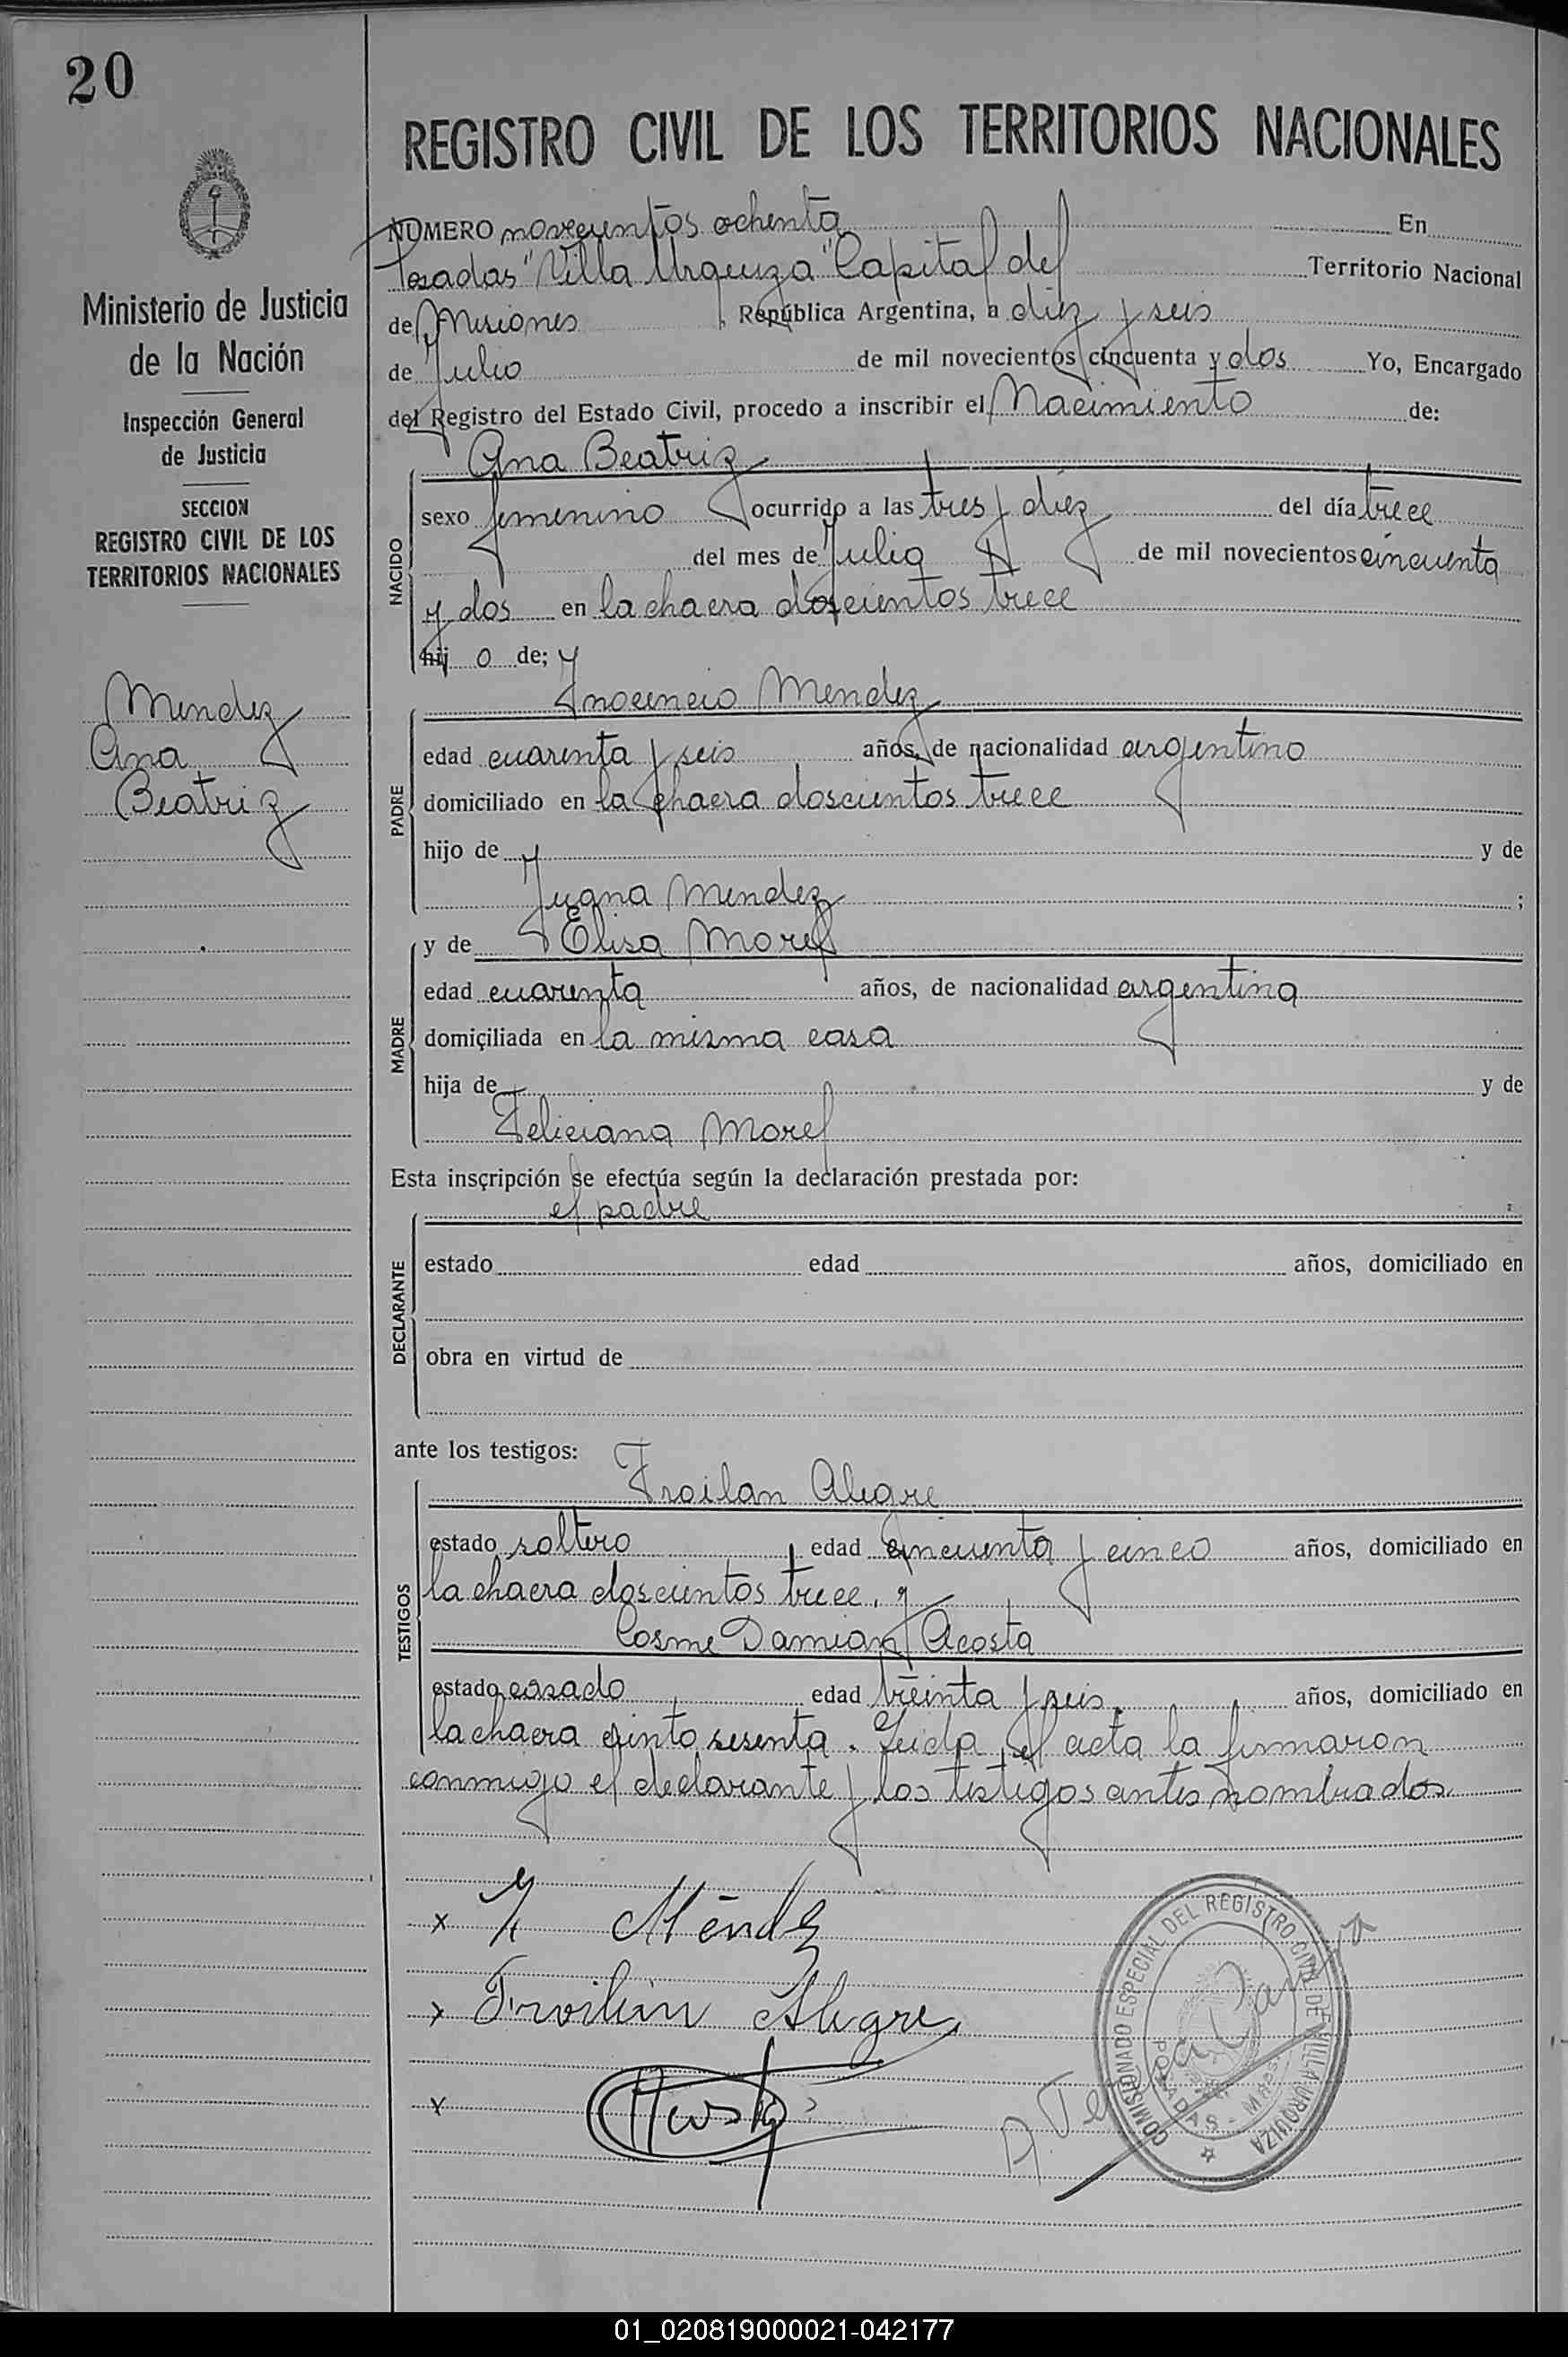 20
REGISTRO CIVIL DE LOS TERRITORIOS NACIONALES
Ministerio de Justicia
de la Nación
Inspección General
de Justicia
SECCION
REGISTRO CIVIL DE LOS
TERRITORIOS NACIONALES
Mendez
Ana
Beatriz
NUMERO novecientos ochenta En
Posadas "Villa Urquiza" Capital del Territorio Nacional
de Misiones, República Argentina, a diez y seis
de Julio de mil novecientos cincuenta y dos Yo, Encargado
del Registro del Estado Civil, procedo a inscribir el Nacimiento de:
Ana Beatriz
NACIDO
sexo femenino ocurrido a las tres y diez del día trece
del mes de Julio de mil novecientos cincuenta
y dos en la chacra doscientos trece
hij o de;
Inocencio Mendez
PADRE
edad cuarenta y seis años, de nacionalidad argentino
domiciliado en la chacra doscientos trece
hijo de y de
Juana Mendez ;
y de Elisa Morel
MADRE
edad cuarenta años, de nacionalidad argentina
domiciliada en la misma casa
hija de y de
Feliciana Morel
Esta inscripción se efectúa según la declaración prestada por:
el padre
DECLARANTE
estado edad años, domiciliado en
obra en virtud de
ante los testigos:
Froilan Alegre
TESTIGOS
estado soltero, edad cincuenta y cinco años, domiciliado en
la chacra doscientos trece, y
Cosme Damian Acosta
estado casado, edad treinta y seis, años, domiciliado en
la chacra ciento sesenta. Leida el acta la firmaron
conmigo el declarante y los testigos antes nombrados.
x I Méndez
x Froilán Alegre
x Acosta
COMISIONADO ESPECIAL DEL REGISTRO CIVIL DE VILLA URQUIZA
POSADAS - MNES.
01_020819000021-042177